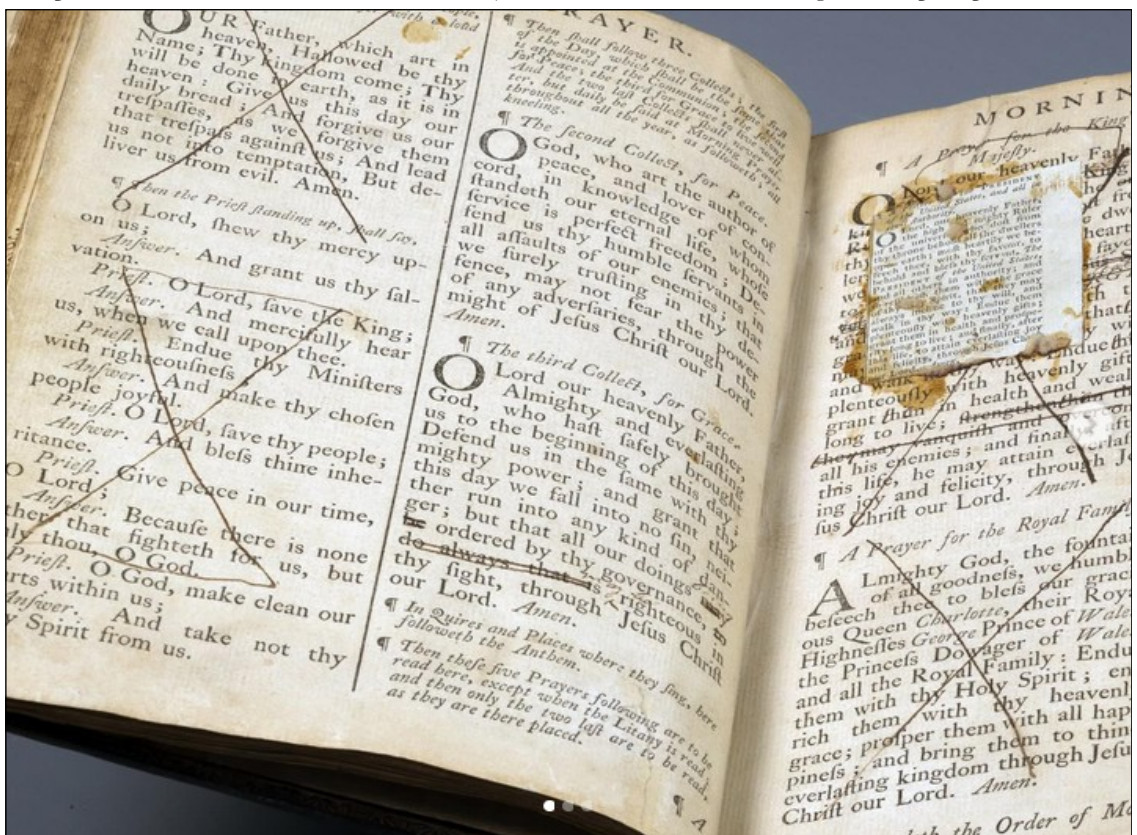 with a loud
OUR Father, which art in
heaven, Hallowed be thy
Name; Thy kingdom come; Thy
will be done in earth, as it is in
heaven: Give us this day our
daily bread; And forgive us our
treſpaſſes, as we forgive them
that treſpaſs againſt us; And lead
us not into temptation, But de-
liver us from evil. Amen.
¶ Then the Prieſt ſtanding up, ſhall ſay,
O Lord, ſhew thy mercy up-
on us;
Anſwer. And grant us thy ſal-
vation.
Prieſt. O Lord, ſave the King;
Anſwer. And mercifully hear
us, when we call upon thee.
Prieſt. Endue thy Miniſters
with righteouſneſs;
Anſwer. And make thy choſen
people joyful.
Prieſt. O Lord, ſave thy people;
Anſwer. And bleſs thine inhe-
ritance.
Prieſt. Give peace in our time,
O Lord;
Anſwer. Becauſe there is none
other that fighteth for us, but
only thou, O God.
Prieſt. O God, make clean our
hearts within us;
Anſwer. And take not thy
Spirit from us.
PRAYER.
¶ Then ſhall follow three Collects; the firſt
of the Day, which ſhall be the ſame that
is appointed at the Communion; the ſecond
for Peace; the third for Grace, to live well.
And the two laſt Collects ſhall never al-
ter, but daily be ſaid at Morning Prayer
throughout all the year, as followeth; all
kneeling.
¶ The ſecond Collect, for Peace.
O God, who art the author of
peace, and lover of con-
cord, in knowledge of whom
ſtandeth our eternal life, whoſe
ſervice is perfect freedom; De-
fend us thy humble ſervants in
all aſſaults of our enemies; that
we ſurely truſting in thy de-
fence, may not fear the power
of any adverſaries, through the
might of Jeſus Chriſt our Lord.
Amen.
¶ The third Collect, for Grace.
O Lord our heavenly Father,
Almighty and everlaſting
God, who haſt ſafely brought
us to the beginning of this day;
Defend us in the ſame with thy
mighty power; and grant that
this day we fall into no ſin, nei-
ther run into any kind of dan-
ger; but that all our doings may
be ordered by thy governance, to
do always that is righteous in
thy ſight, through Jeſus Chriſt
our Lord. Amen.
¶ In Quires and Places where they ſing, here
followeth the Anthem.
¶ Then theſe five Prayers following are to be
read here, except when the Litany is read;
and then only the two laſt are to be read,
as they are there placed.
¶ A
MORNIN
¶ A Prayer for the King
Majeſty.
O Lord our heavenly Fath
PRESIDENT
United States, and all in
authority.
O
heavenly Father,
mighty Ruler
of the univerſe, who
thy throne behold all the dwellers
earth; heartily we be-
ſeech thee, with thy favour, to
behold and bleſs thy ſervant, The
PRESIDENT of the United States;
and all others in authority;
walk in thy way: Endue them
plenteouſly with heavenly gifts;
grant them in health
long to live; and finally, after
this life, to attain everlaſting joy
and felicity, through
Endue
and walk
plenteouſly with heavenly gift
grant them in health and weal
long to live; ſtrengthen him th
they may vanquiſh and
all his enemies; and finally aft
this life, he may attain everlaſ
ing joy and felicity, through Je
ſus Chriſt our Lord. Amen.
¶ A Prayer for the Royal Fami
Almighty God, the founta
of all goodneſs, we humbl
beſeech thee to bleſs our graci
ous Queen Charlotte, their Roya
Highneſſes George Prince of Wale
the Princeſs Dowager of Wale
and all the Royal Family: Endu
them with thy Holy Spirit; en
rich them with thy heavenl
grace; proſper them with all hap
pineſs; and bring them to thin
everlaſting kingdom through Jeſu
Chriſt our Lord. Amen.
the Order of Mo